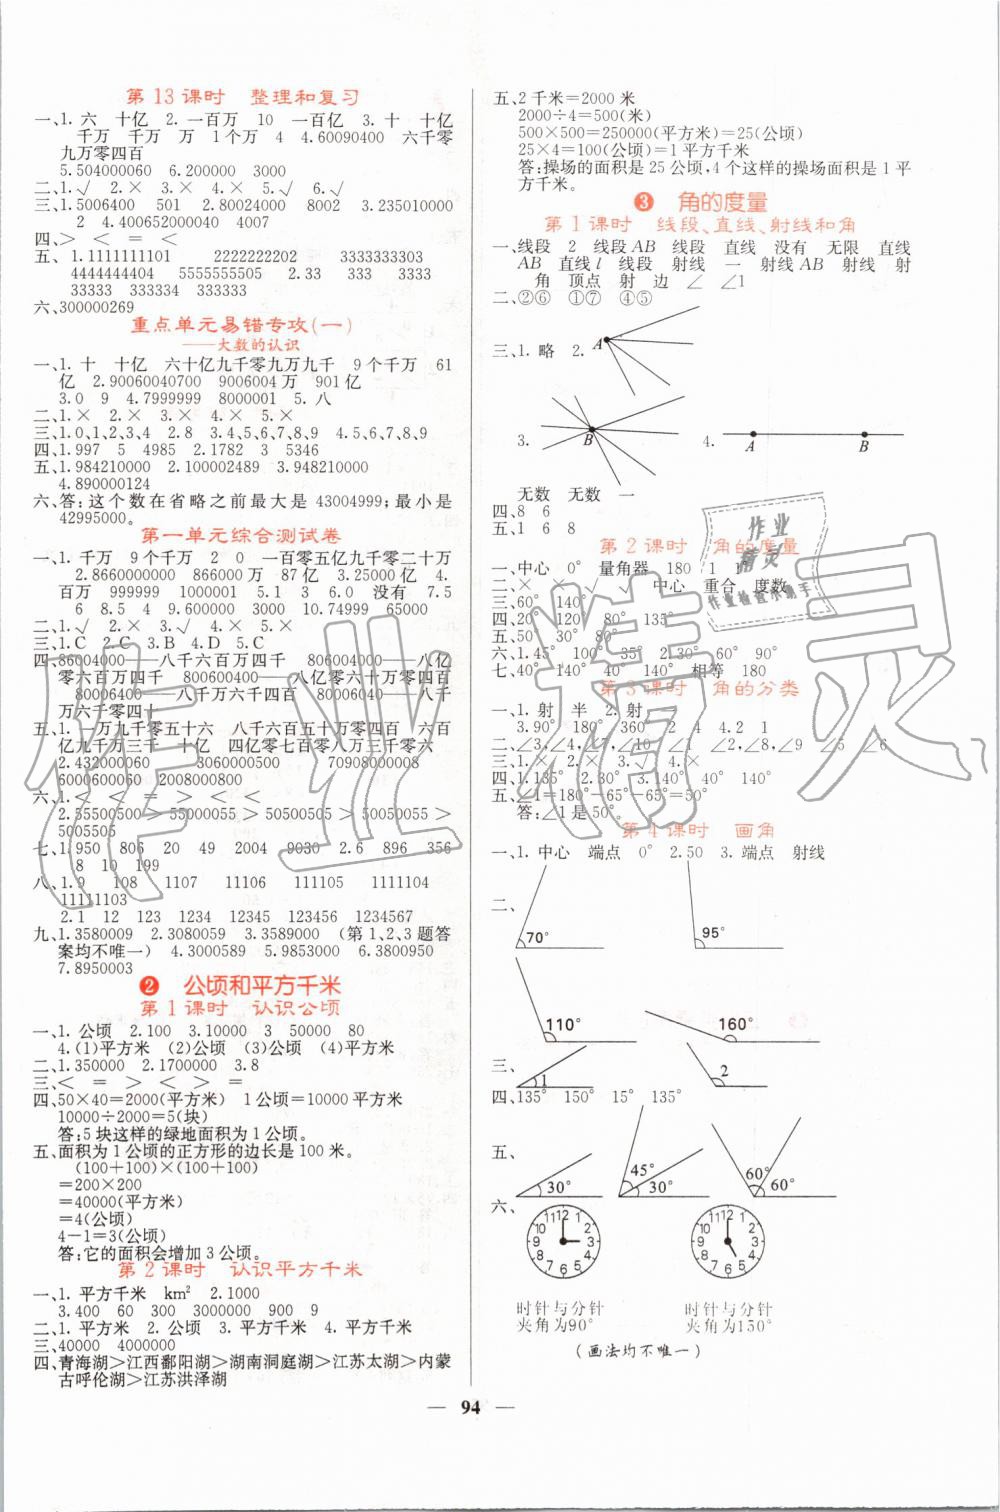 第13课时 整理和复习
一、1.六 十亿 2.一百万 10 一百亿 3.十 十亿
千万 千万 万 1个万 4 4.60090400 六千零
九万零四百
5.504000060 6.200000 3000
二、1.√ 2.× 3.× 4.× 5.√ 6.√
三、1.5006400 501 2.80024000 8002 3.235010000
2 4.400652000040 4007
四、> < = <
五、1.1111111101 2222222202 3333333303
4444444404 5555555505 2.33 333 3333
33333 333334 333333
六、300000269
重点单元易错专攻(一)
——大数的认识
一、1.十 十亿 六十亿九千零九万九千 9个千万 61
亿 2.90060040700 9006004万 901亿
3.0 9 4.7999999 8000001 5.八
二、1.× 2.× 3.× 4.× 5.×
三、1.0、1、2、3、4 2.8 3.4、5、6、7、8、9 4.5、6、7、8、9
四、1.997 5 4985 2.1782 3 5346
五、1.984210000 2.100002489 3.948210000
4.890000124
六、答:这个数在省略之前最大是43004999;最小是
42995000。
第一单元综合测试卷
一、1.千万 9个千万 2 0 一百零五亿九千零二十万
2.8660000000 866000万 87亿 3.25000 4.
百万 999999 1000001 5.1 3 6.0 没有 7.5
6 8.5 4 9.6 3000 10.74999 65000
二、1.√ 2.× 3.× 4.√ 5.×
三、1.C 2.C 3.C 4.D 5.C
四、86004000——八千六百万四千 806004000——八亿
零六百万四千 800604000——八亿零六十万四千
80006400——八千万六千四百 80006040——八千
万六千零四十
五、1.一万九千零五十六 八千六百五十万零四百 六百
亿九千万三千 十亿 四亿零七百零八万三千零六
2.432000060 3060000500 70908000060
6000600060 2008000800
六、1.< < = > < <
2.55500500>55000055>50505005>50050055>
5005505
七、1.950 806 20 49 2004 9030 2.6 896 356
8 10 199
八、1.9 108 1107 11106 111105 1111104
11111103
2.1 12 123 1234 12345 123456 1234567
九、1.3580009 2.3080059 3.3589000 (第1、2、3题答
案均不唯一) 4.3000589 5.9853000 6.3800950
7.8950003
2 公顷和平方千米
第1课时 认识公顷
一、1.公顷 2.100 3.10000 3 50000 80
4.(1)平方米 (2)公顷 (3)公顷 (4)平方米
二、1.350000 2.1700000 3.8
三、< = > < > =
四、50×40=2000(平方米) 1公顷=10000平方米
10000÷2000=5(块)
答:5块这样的绿地面积为1公顷。
五、面积为1公顷的正方形的边长是100米。
(100+100)×(100+100)
=200×200
=40000(平方米)
=4(公顷)
4-1=3(公顷)
答:它的面积会增加3公顷。
第2课时 认识平方千米
一、1.平方千米 km² 2.1000
3.400 60 300 3000000 900 9
二、1.平方米 2.公顷 3.平方千米 4.平方千米
三、40000 4000000
四、青海湖>江西鄱阳湖>湖南洞庭湖>江苏太湖>内蒙
古呼伦湖>江苏洪泽湖
五、2千米=2000米
2000÷4=500(米)
500×500=250000(平方米)=25(公顷)
25×4=100(公顷)=1平方千米
答:操场的面积是25公顷,4个这样的操场面积是1平
方千米。
3 角的度量
第1课时 线段、直线、射线和角
一、线段 2 线段AB 线段 直线 没有 无限 直线
AB 直线l 线段 射线 一 射线AB 射线 射
角 顶点 射 边 ∠ ∠1
二、②⑥ ①⑦ ④⑤
三、1.略 2. A
3. B 4. A B
无数 无数 一
四、8 6
五、1 6 8
第2课时 角的度量
一、中心 0° 量角器 180 1 1°
二、× × √ √ 中心 重合 度数
三、60° 140°
四、20° 120° 80° 135°
五、50° 30° 80°
六、1.45° 100° 35° 2.30° 60° 90°
七、40° 140° 40° 140° 相等 180°
第3课时 角的分类
一、1.射 半 2.射
3.90° 180° 360° 2 4 4.2 1
二、∠3,∠4,∠7,∠10 ∠1 ∠2,∠8,∠9 ∠5 ∠6
三、1.× 2.× 3.√ 4.×
四、1.135° 2.30° 3.140° 40° 140°
五、∠1=180°-65°-65°=50°
答:∠1是50°。
第4课时 画角
一、1.中心 端点 0° 2.50 3.端点 射线
二、
70° 95°
110° 160°
三、
1 2
四、135° 150° 15° 135°
五、
30° 45° 30° 60° 60°
六、
12 1 2 3 4 5 6 7 8 9 10 11
12 1 2 3 4 5 6 7 8 9 10 11
时针与分针 时针与分针
夹角为90° 夹角为150°
(画法均不唯一)
94
作业精灵
作业
精灵
作业检查小助手